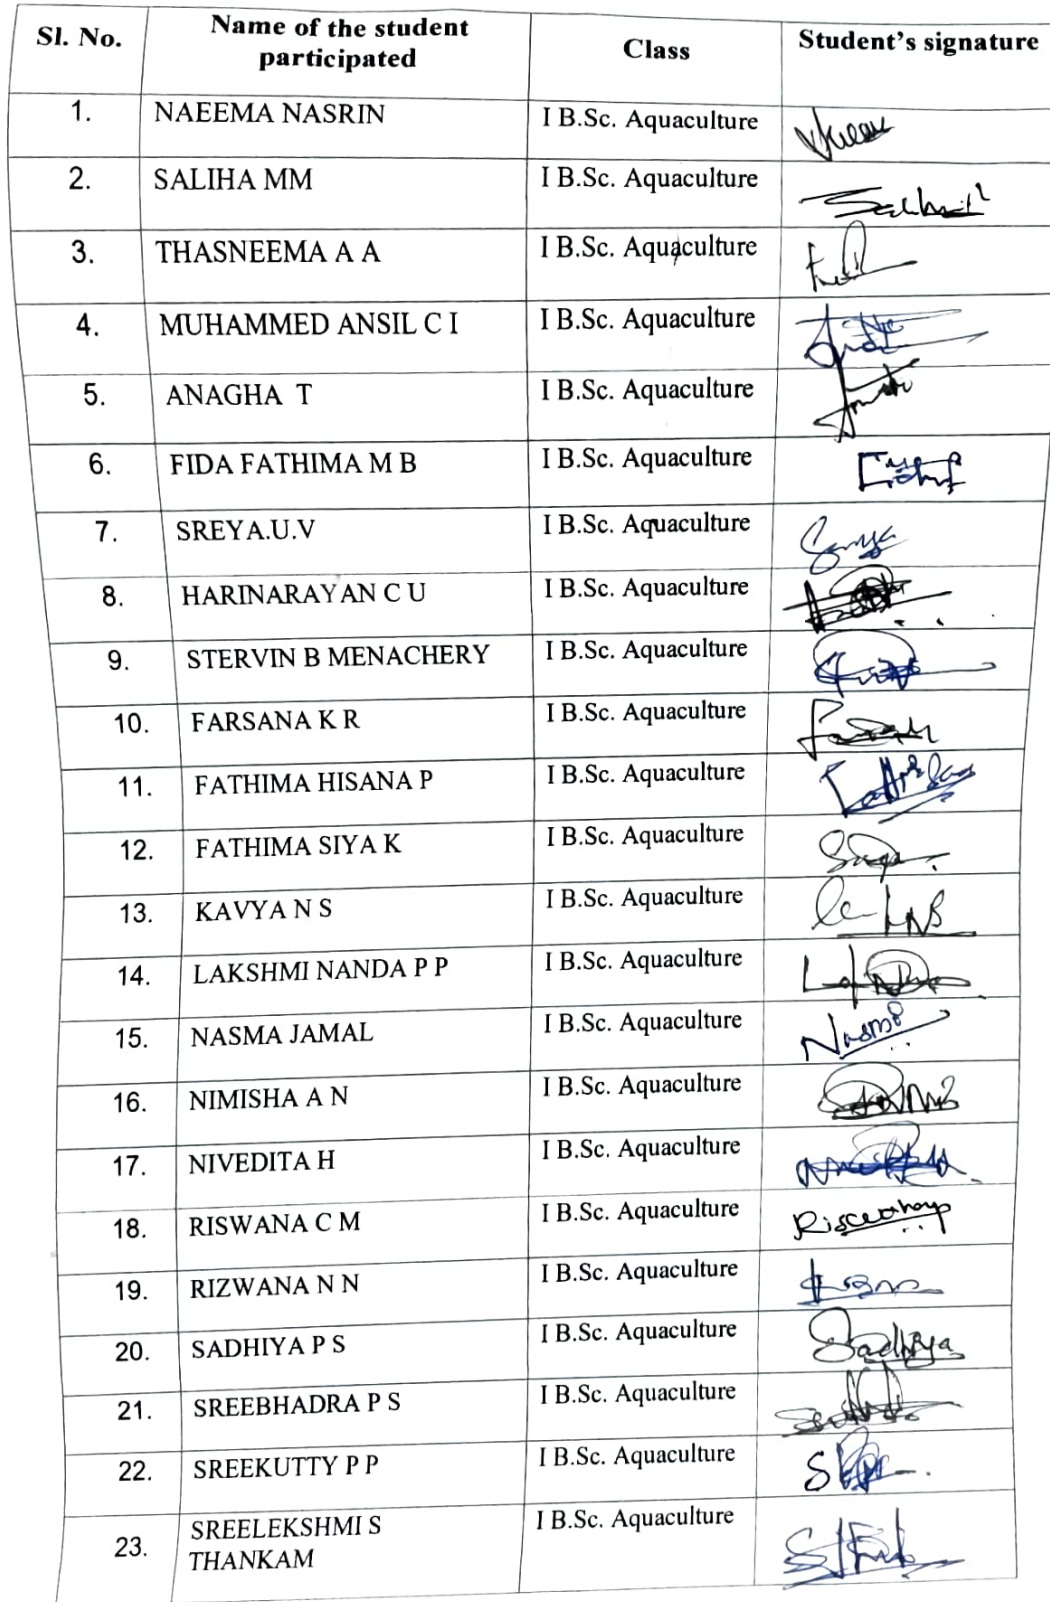 Sl. No. Name of the student participated Class Student's signature
1. NAEEMA NASRIN I B.Sc. Aquaculture
2. SALIHA MM I B.Sc. Aquaculture
3. THASNEEMA A A I B.Sc. Aquaculture
4. MUHAMMED ANSIL C I I B.Sc. Aquaculture
5. ANAGHA T I B.Sc. Aquaculture
6. FIDA FATHIMA M B I B.Sc. Aquaculture
7. SREYA.U.V I B.Sc. Aquaculture
8. HARINARAYAN C U I B.Sc. Aquaculture
9. STERVIN B MENACHERY I B.Sc. Aquaculture
10. FARSANA K R I B.Sc. Aquaculture
11. FATHIMA HISANA P I B.Sc. Aquaculture
12. FATHIMA SIYA K I B.Sc. Aquaculture
13. KAVYA N S I B.Sc. Aquaculture
14. LAKSHMI NANDA P P I B.Sc. Aquaculture
15. NASMA JAMAL I B.Sc. Aquaculture
16. NIMISHA A N I B.Sc. Aquaculture
17. NIVEDITA H I B.Sc. Aquaculture
18. RISWANA C M I B.Sc. Aquaculture
19. RIZWANA N N I B.Sc. Aquaculture
20. SADHIYA P S I B.Sc. Aquaculture Sadhiya
21. SREEBHADRA P S I B.Sc. Aquaculture
22. SREEKUTTY P P I B.Sc. Aquaculture
23. SREELEKSHMI S THANKAM I B.Sc. Aquaculture